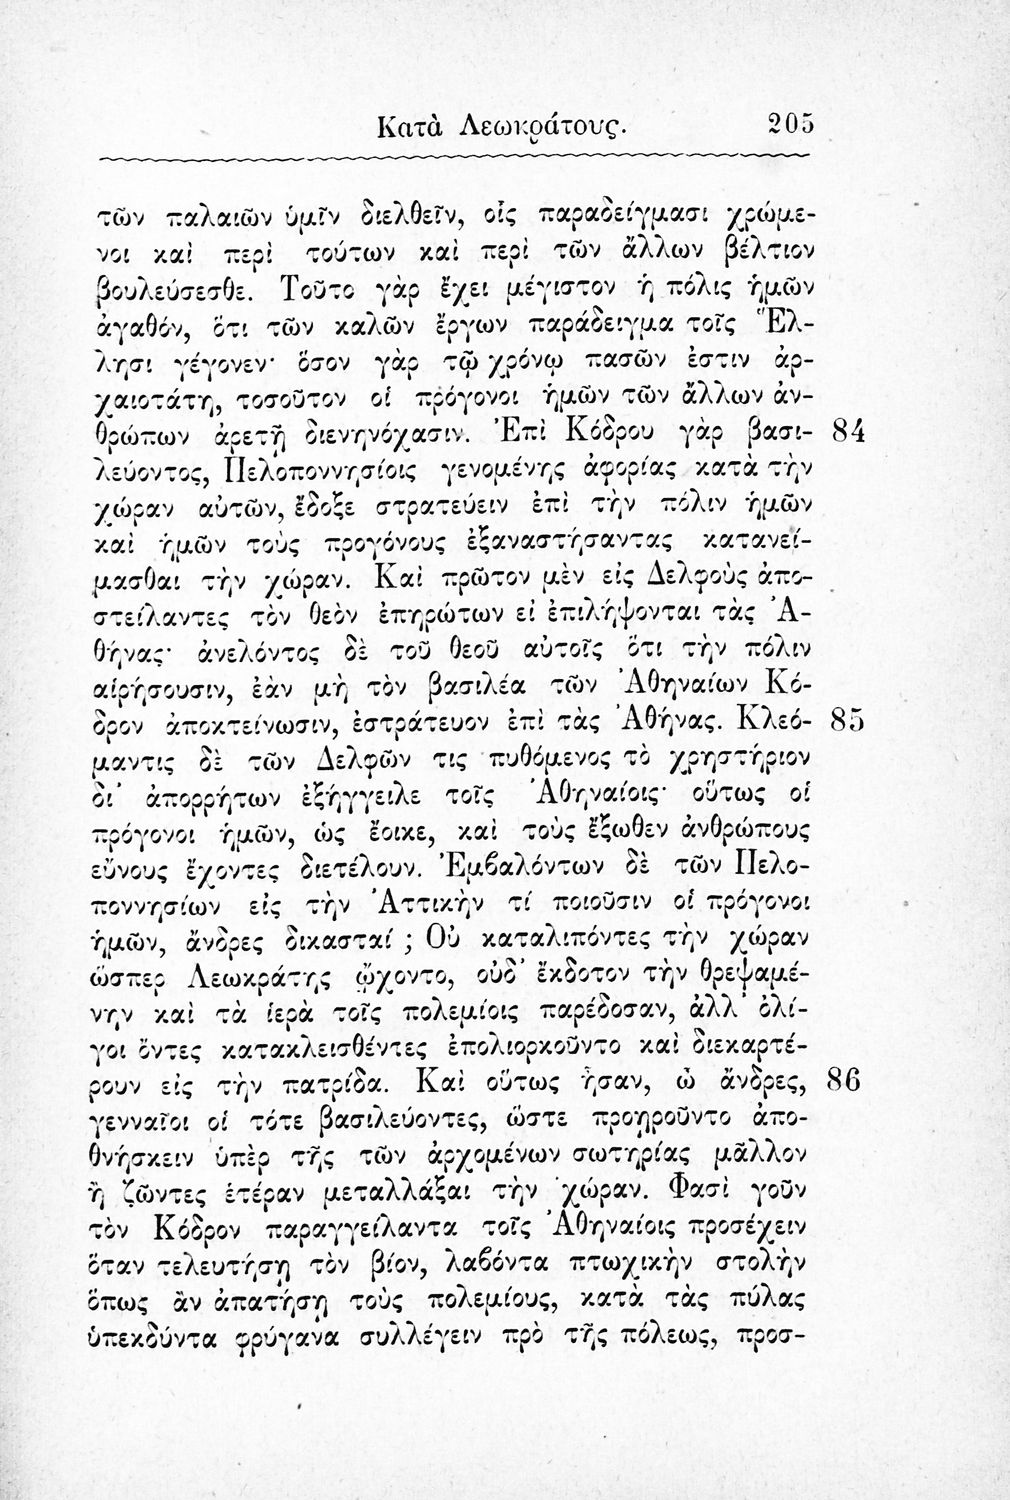 Κατὰ Λεωκράτους. 205
τῶν παλαιῶν ὑμῖν διελθεῖν, οἷς παραδείγμασι χρώμε-
νοι καὶ περὶ τούτων καὶ περὶ τῶν ἄλλων βέλτιον
βουλεύσεσθε. Τοῦτο γὰρ ἔχει μέγιστον ἡ πόλις ἡμῶν
ἀγαθόν, ὅτι τῶν καλῶν ἔργων παράδειγμα τοῖς Ἕλ-
λησι γέγονεν· ὅσον γὰρ τῷ χρόνῳ πασῶν ἐστιν ἀρ-
χαιοτάτη, τοσοῦτον οἱ πρόγονοι ἡμῶν τῶν ἄλλων ἀν-
θρώπων ἀρετῇ διενηνόχασιν. Ἐπὶ Κόδρου γὰρ βασι- 84
λεύοντος, Πελοποννησίοις γενομένης ἀφορίας κατὰ τὴν
χώραν αὐτῶν, ἔδοξε στρατεύειν ἐπὶ τὴν πόλιν ἡμῶν
καὶ ἡμῶν τοὺς προγόνους ἐξαναστήσαντας κατανεί-
μασθαι τὴν χώραν. Καὶ πρῶτον μὲν εἰς Δελφοὺς ἀπο-
στείλαντες τὸν θεὸν ἐπηρώτων εἰ ἐπιλήψονται τὰς Ἀ-
θήνας· ἀνελόντος δὲ τοῦ θεοῦ αὐτοῖς ὅτι τὴν πόλιν
αἱρήσουσιν, ἐὰν μὴ τὸν βασιλέα τῶν Ἀθηναίων Κό-
δρον ἀποκτείνωσιν, ἐστράτευον ἐπὶ τὰς Ἀθήνας. Κλεό- 85
μαντις δὲ τῶν Δελφῶν τις πυθόμενος τὸ χρηστήριον
δι' ἀπορρήτων ἐξήγγειλε τοῖς Ἀθηναίοις· οὕτως οἱ
πρόγονοι ἡμῶν, ὡς ἔοικε, καὶ τοὺς ἔξωθεν ἀνθρώπους
εὔνους ἔχοντες διετέλουν. Ἐμβαλόντων δὲ τῶν Πελο-
ποννησίων εἰς τὴν Ἀττικὴν τί ποιοῦσιν οἱ πρόγονοι
ἡμῶν, ἄνδρες δικασταί ; Οὐ καταλιπόντες τὴν χώραν
ὥσπερ Λεωκράτης ᾤχοντο, οὐδ' ἔκδοτον τὴν θρεψαμέ-
νην καὶ τὰ ἱερὰ τοῖς πολεμίοις παρέδοσαν, ἀλλ' ὀλί-
γοι ὄντες κατακλεισθέντες ἐπολιορκοῦντο καὶ διεκαρτέ-
ρουν εἰς τὴν πατρίδα. Καὶ οὕτως ἦσαν, ὦ ἄνδρες, 86
γενναῖοι οἱ τότε βασιλεύοντες, ὥστε προῃροῦντο ἀπο-
θνήσκειν ὑπὲρ τῆς τῶν ἀρχομένων σωτηρίας μᾶλλον
ἢ ζῶντες ἑτέραν μεταλλάξαι τὴν χώραν. Φασὶ γοῦν
τὸν Κόδρον παραγγείλαντα τοῖς Ἀθηναίοις προσέχειν
ὅταν τελευτήσῃ τὸν βίον, λαβόντα πτωχικὴν στολὴν
ὅπως ἂν ἀπατήσῃ τοὺς πολεμίους, κατὰ τὰς πύλας
ὑπεκδύντα φρύγανα συλλέγειν πρὸ τῆς πόλεως, προσ-